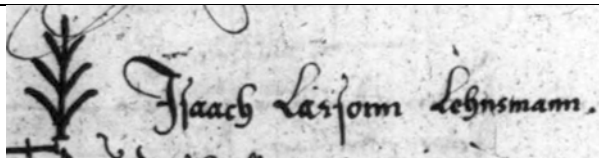 Isaach Larsonn Lehnsmann.